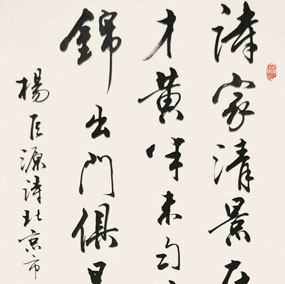 詩家清景在
才黃半未勻
錦出門俱是
楊巨源詩北京市